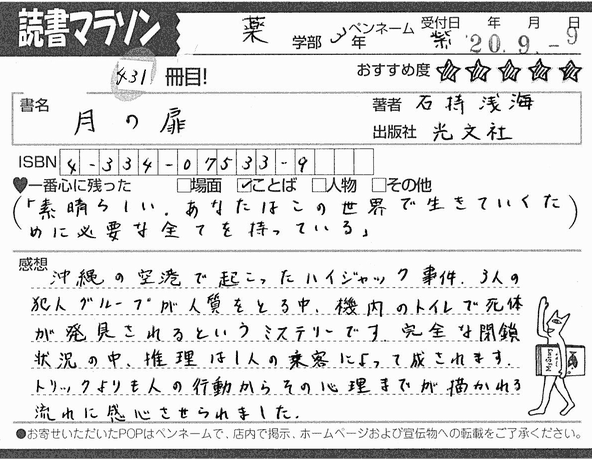 読書マラソン
薬 学部 3年 ペンネーム 紫 受付日 年 月 日
20.9.-9
431 冊目!
おすすめ度 ☆☆☆☆☆
書名 月の扉
著者 石持浅海
出版社 光文社
ISBN 4-334-07533-9
♥一番心に残った □場面 ☑ことば □人物 □その他
(「素晴らしい。あなたはこの世界で生きていくた
めに必要な全てを持っている」)
感想
沖縄の空港で起こったハイジャック事件。3人の
犯人グループが人質をとる中、機内のトイレで死体
が発見されるというミステリーです。完全な閉鎖
状況の中、推理は1人の乗客によって成されます。
トリックよりも人の行動からその心理までが描かれる
流れに感心させられました。
●お寄せいただいたPOPはペンネームで、店内で掲示、ホームページおよび宣伝物への転載をご了承ください。